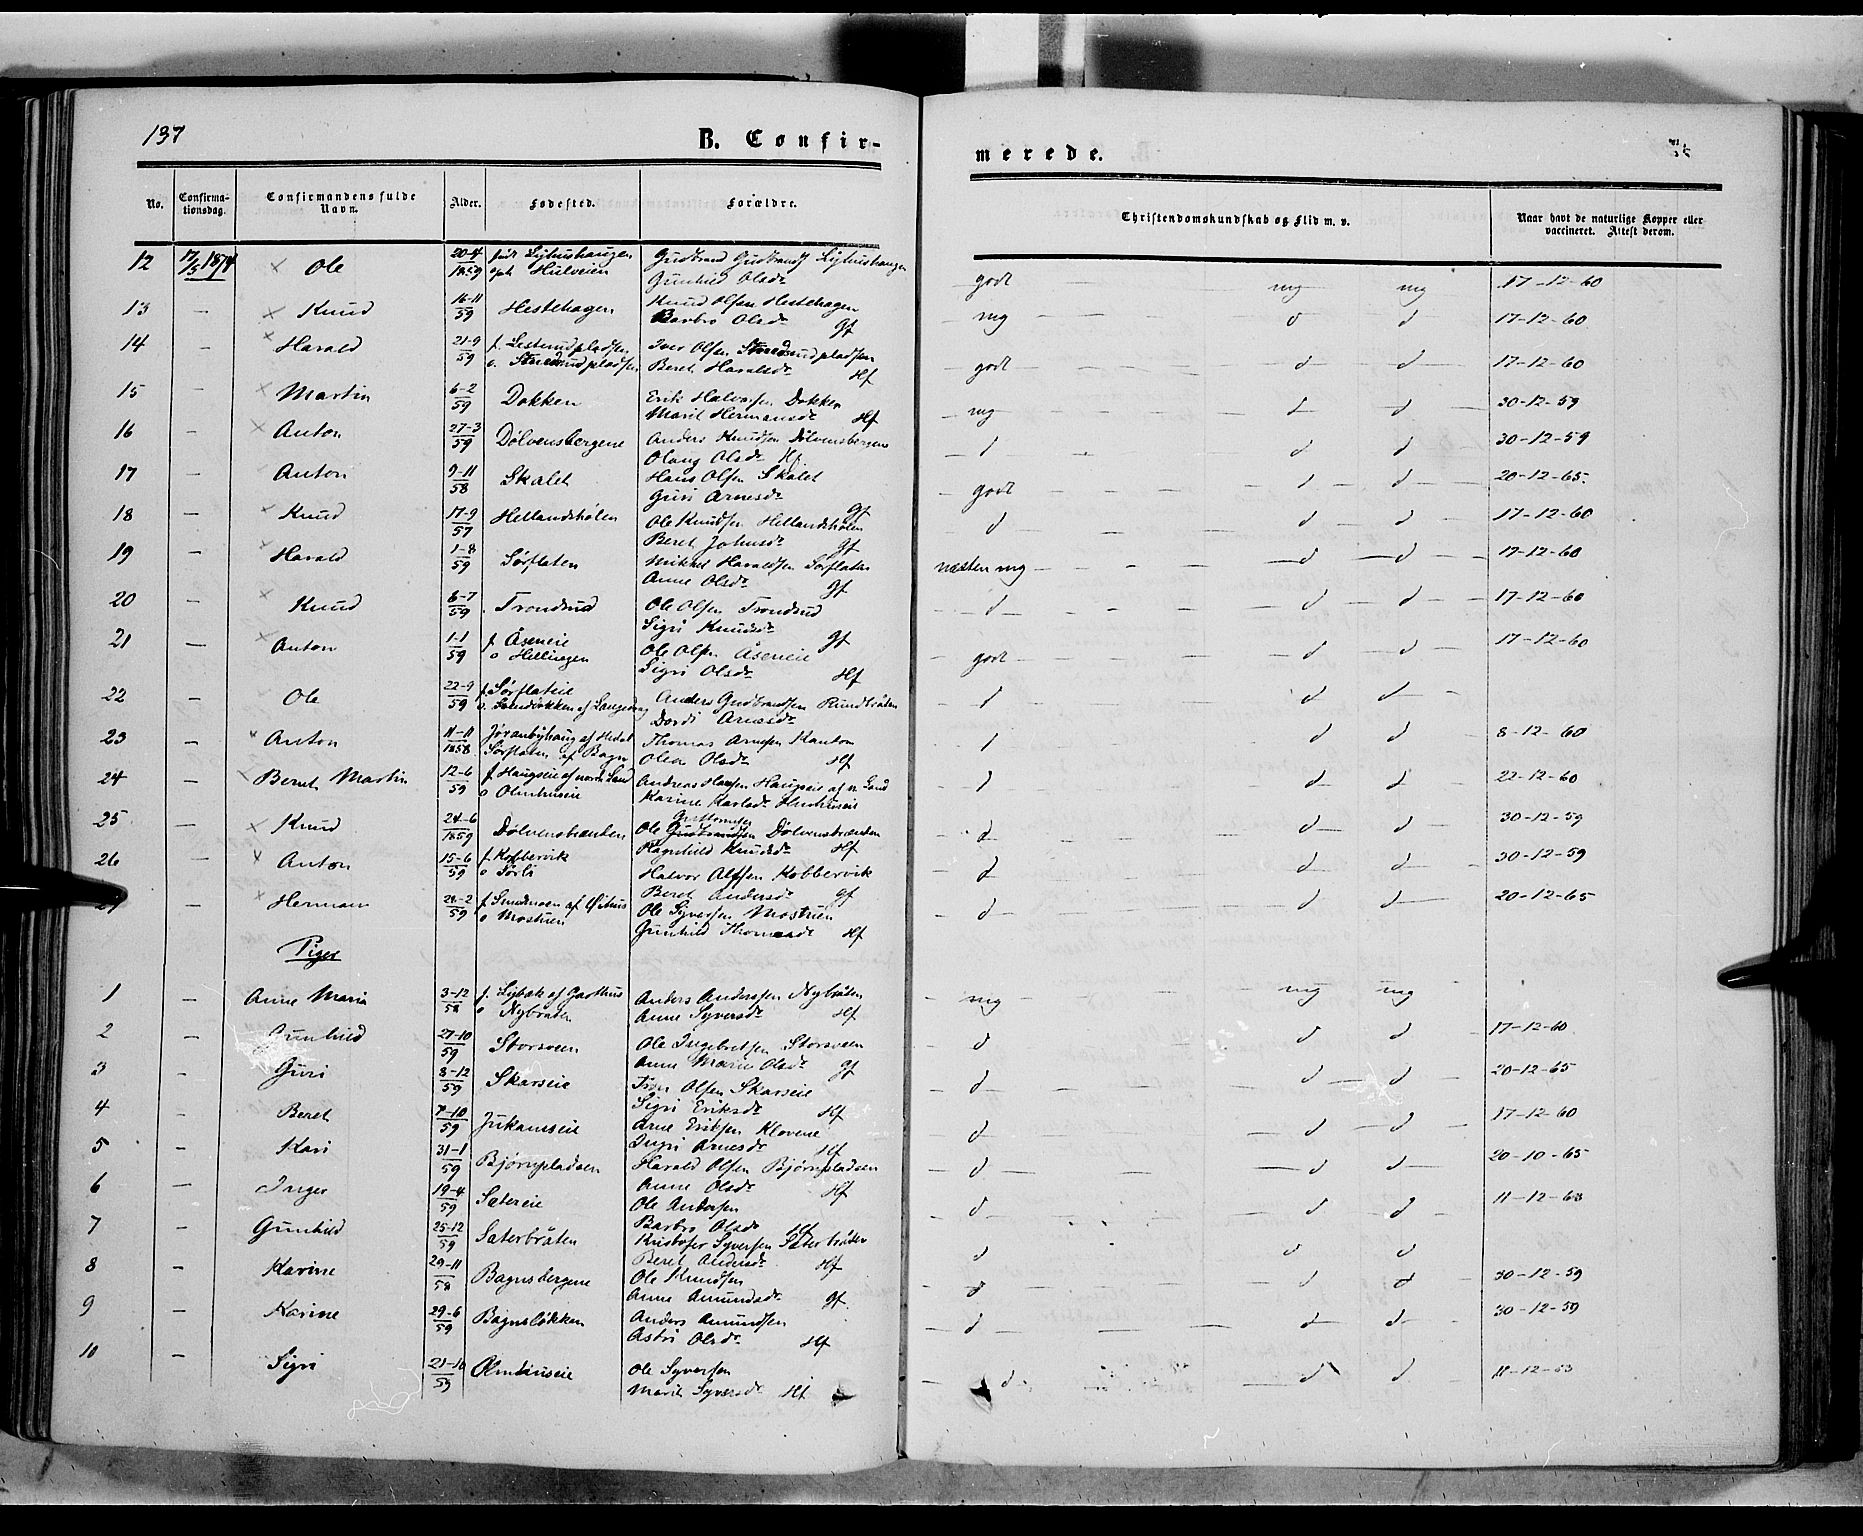 137
B. Confir-
merede.
No. Confirma-tionsdag. Confirmandens fulde Navn. Alder. Fødested. Forældre.
Christendomskundskab og Flid m. v. Naar havt de naturlige Kopper eller vaccineret. Attest derom.
12 17/5 1874 Ole 20-4 1859 Hulveien
Gunhild Olsdr godt mg mg 17-12-60
13 — Knud 16-11 59 Hestehagen Knud Olsen Hestehagen
Barbro Olsdr gf mg d d 17-12-60
14 — Harald 21-9 59 Iver Olsen
Beret Haraldsdr Hf godt d d 17-12-60
15 — Martin 6-2 59 Dokken Erik Halvorsen Dokken
Marit Hermansdr Hf mg d d 30-12-59
16 — Anton 27-3 59 Dølvensbergene Anders Knudsen Dølvensbergene
Olaug Olsdr Hf d d d 30-12-59
17 — Anton 9-11 58 Skalet Hans Olsen Skalet
Guri Arnesdr gf godt d d 20-12-65
18 — Knud 17-9 57 Hellandshølen Ole Knudsen Hellandshølen
Beret Johnsdr gf d d d 17-12-60
19 — Harald 1-8 59 Sørflaten Mikkel Haraldsen Sørflaten
Anne Olsdr gf næsten mg d d 17-12-60
20 — Knud 8-7 59 Trondrud Ole Olsen Trondrud
Sigri Knudsdr gf d d d 17-12-60
21 — Anton 1-1 59 f. Åseneie
o Hellingen Ole Olsen Åseneie
Sigri Olsdr Hf godt d d 17-12-60
22 — Ole 22-9 59 f. Sørflateie
Anders Gudbrandsen Rundbråten
Dordi Arnesdr d d d
23 — Anton 11-11 1858 Sørflaten af Bagn Thomas Arnesen Kanton
Olea Olsdr Hf d d d 8-12-60
24 — Bernt Martin 12-6 59 f. Haugseie af nordre Land
o Olmhuseie Andreas Hansen Haugseie af n. Land
Karine Karlsdr Olmhuseie d d d 22-12-60
25 — Knud 24-6 1859 Dølvensbrænden Ole Dølvensbrænden
Ragnhild Knudsdr Hf d d d 30-12-59
26 — Anton 15-6 59 f. Kobbervik
o Sørli Halvor Olsen Kobbervik
Beret Andersdr gf d d d 30-12-59
27 — Herman 24-2 59
o Mostuen Ole Syversen Mostuen
Gunhild Thomasdr Hf d d d 20-12-65
Piger
1 — Anne Maria 3-12 58 f. Lybæk af Garthus
o Nybråten Anders Anderssen Nybråten
Anne Syversdr Hf mg mg mg
2 — Gunhild 27-10 59 Storsveen Ole Ingebretsen Storsveen
Anne Marie Olsdr gf d d d 17-12-60
3 — Guri 8-12 59 Skarseie Iver Olsen Skarseie
Sigri Eriksdr Hf d d d 20-12-65
4 — Beret 7-10 59 Jukameie Arne Eriksen Klovene
Ingri Arnesdr Hf d d d 17-12-60
5 — Kari 31-1 59 Bjørnpladsen Harald Olsen Bjørnpladsen
Anne Olsdr Hf d d d 20-10-65
6 — Inger 19-4 59 Sætereie Ole Andersen
Barbro Olsdr Hf d d d 11-12-63
7 — Gunhild 25-12 59 Sæterbråten Kristofer Syversen Sæterbråten
Beret Andersdr Hf d d d
8 — Karine 29-11 58 Bagnsbergene Ole Knudsen
Anne Amundsdr gf. d d d 30-12-59
9 — Karine 29-6 59 Bagnsløkken Anders Amundsen
Astri Olsdr Hf d d d 30-12-59
10 — Sigri 21-10 59 Olmhuseie Ole Syversen
Marit Syversdr Hf d d d 11-12-63